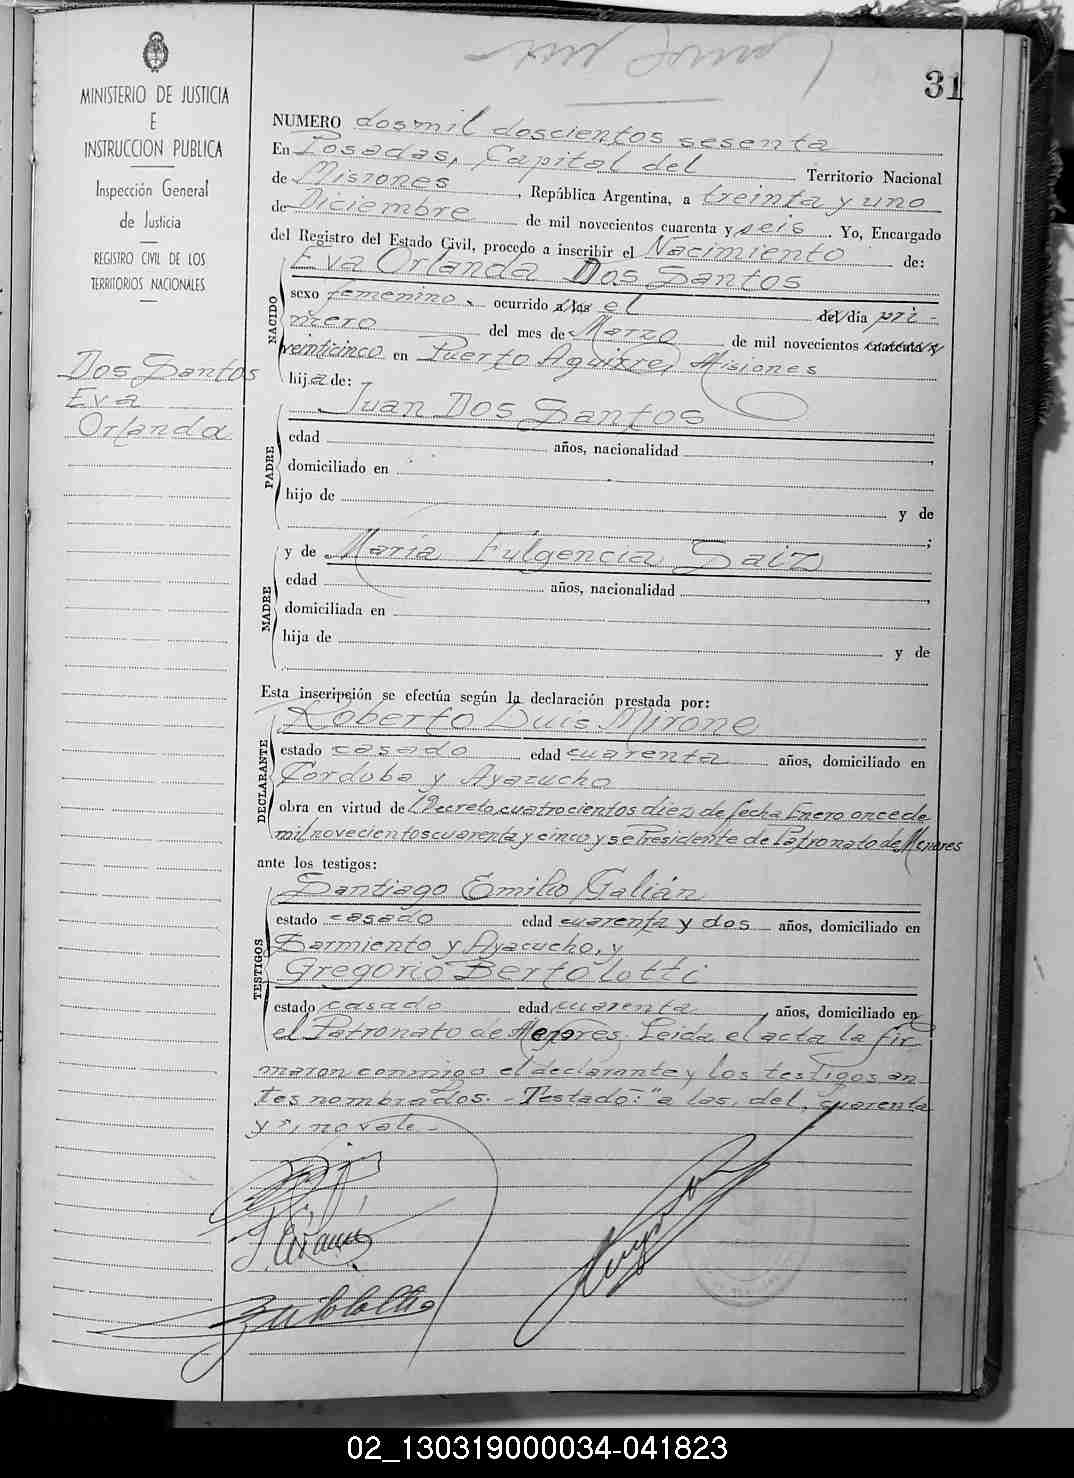 31
MINISTERIO DE JUSTICIA
E
INSTRUCCION PUBLICA
Inspección General
de Justicia
REGISTRO CIVIL DE LOS
TERRITORIOS NACIONALES
Dos Santos
Eva
Orlanda
NUMERO dosmil doscientos sesenta
En Posadas, Capital del Territorio Nacional
de Misiones, República Argentina, a treinta y uno
de Diciembre de mil novecientos cuarenta y seis. Yo, Encargado
del Registro del Estado Civil, procedo a inscribir el Nacimiento de:
NACIDO
Eva Orlanda Dos Santos
sexo femenino. ocurrido a las el del día pri-
mero del mes de Marzo de mil novecientos cuarenta y
veinticinco en Puerto Aguirre, Misiones
hija de:
PADRE
Juan Dos Santos
edad años, nacionalidad ,
domiciliado en
hijo de y de
;
MADRE
y de María Fulgencia Saiz
edad años, nacionalidad ,
domiciliada en
hija de y de
Esta inscripción se efectúa según la declaración prestada por:
DECLARANTE
Roberto Luis Mirone
estado casado edad cuarenta años, domiciliado en
Cordoba y Ayacucho
obra en virtud de Decreto cuatrocientos diez de fecha Enero once de
mil novecientos cuarenta y cinco y se Presidente de Patronato de Menores
ante los testigos:
TESTIGOS
Santiago Emilio Galián
estado casado edad cuarenta y dos años, domiciliado en
Sarmiento y Ayacucho, y
Gregorio Bertolotti
estado casado edad cuarenta, años, domiciliado en
el Patronato de Menores. Leida el acta la fir
maron conmigo el declarante y los testigos an-
tes nombrados.- Testado: "a las, del, cuarenta
y", no vale.-
02_130319000034-041823